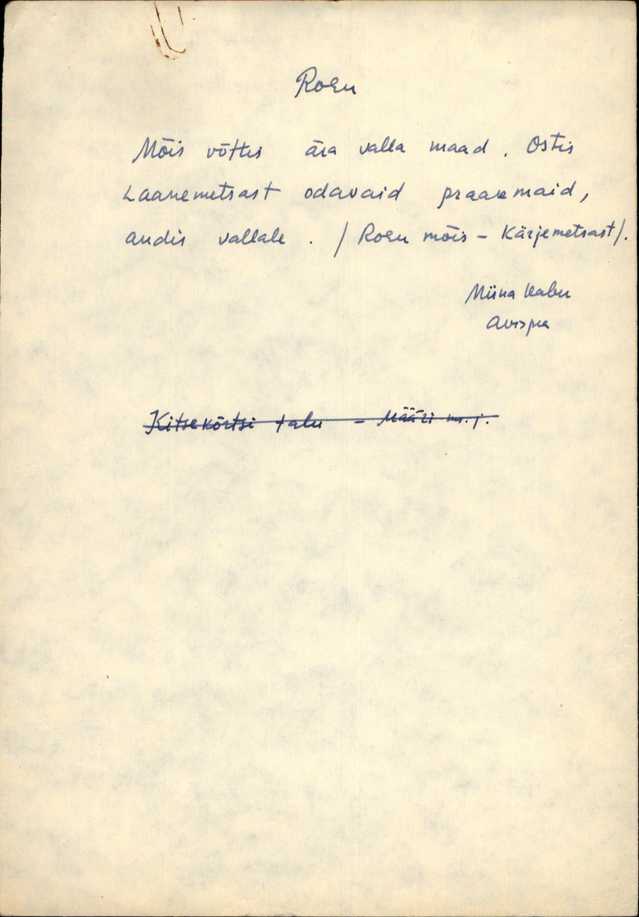 Roeu
Mõis võttis ära valla maad. Ostis
Laanemetsast odavaid praakmaid,
andis vallale. / Roeu mõis - Kärjemetsast/.
Miina
Avispea
Kitsekõrtsi talu - Määri m. j.